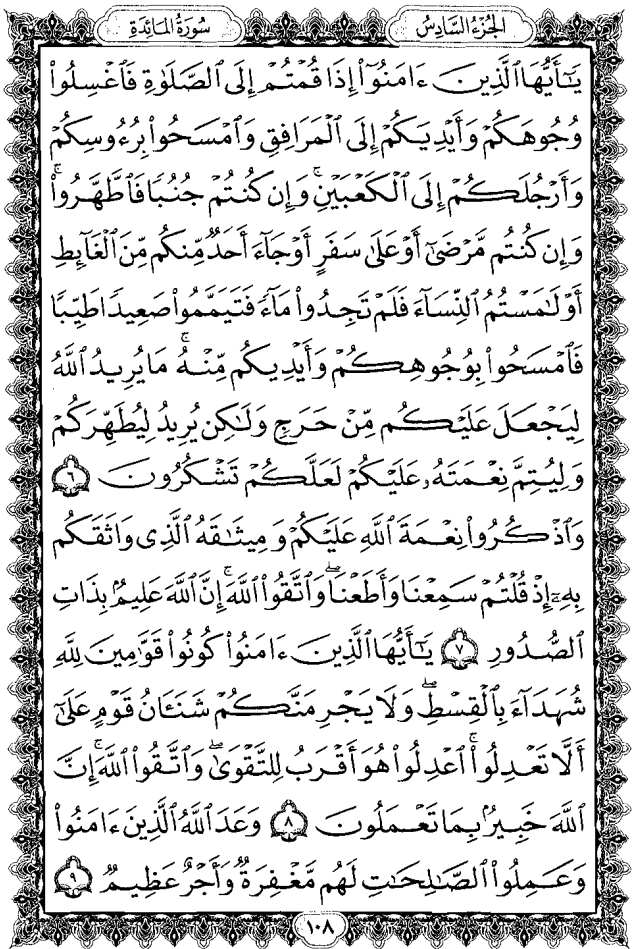 سُورَةُ المَائِدَةِ
الجُزْءُ السَّادِسُ
يَٰٓأَيُّهَا ٱلَّذِينَ ءَامَنُوٓا۟ إِذَا قُمْتُمْ إِلَى ٱلصَّلَوٰةِ فَٱغْسِلُوا۟
وُجُوهَكُمْ وَأَيْدِيَكُمْ إِلَى ٱلْمَرَافِقِ وَٱمْسَحُوا۟ بِرُءُوسِكُمْ
وَأَرْجُلَكُمْ إِلَى ٱلْكَعْبَيْنِ ۚ وَإِن كُنتُمْ جُنُبًا فَٱطَّهَّرُوا۟ ۚ
وَإِن كُنتُم مَّرْضَىٰٓ أَوْ عَلَىٰ سَفَرٍ أَوْ جَآءَ أَحَدٌ مِّنكُم مِّنَ ٱلْغَآئِطِ
أَوْ لَٰمَسْتُمُ ٱلنِّسَآءَ فَلَمْ تَجِدُوا۟ مَآءً فَتَيَمَّمُوا۟ صَعِيدًا طَيِّبًا
فَٱمْسَحُوا۟ بِوُجُوهِكُمْ وَأَيْدِيكُم مِّنْهُ ۚ مَا يُرِيدُ ٱللَّهُ
لِيَجْعَلَ عَلَيْكُم مِّنْ حَرَجٍ وَلَٰكِن يُرِيدُ لِيُطَهِّرَكُمْ
وَلِيُتِمَّ نِعْمَتَهُۥ عَلَيْكُمْ لَعَلَّكُمْ تَشْكُرُونَ ٦
وَٱذْكُرُوا۟ نِعْمَةَ ٱللَّهِ عَلَيْكُمْ وَمِيثَٰقَهُ ٱلَّذِى وَاثَقَكُم
بِهِۦٓ إِذْ قُلْتُمْ سَمِعْنَا وَأَطَعْنَا ۖ وَٱتَّقُوا۟ ٱللَّهَ ۚ إِنَّ ٱللَّهَ عَلِيمٌۢ بِذَاتِ
ٱلصُّدُورِ ٧ يَٰٓأَيُّهَا ٱلَّذِينَ ءَامَنُوا۟ كُونُوا۟ قَوَّٰمِينَ لِلَّهِ
شُهَدَآءَ بِٱلْقِسْطِ ۖ وَلَا يَجْرِمَنَّكُمْ شَنَـَٔانُ قَوْمٍ عَلَىٰٓ
أَلَّا تَعْدِلُوا۟ ۚ ٱعْدِلُوا۟ هُوَ أَقْرَبُ لِلتَّقْوَىٰ ۖ وَٱتَّقُوا۟ ٱللَّهَ ۚ إِنَّ
ٱللَّهَ خَبِيرٌۢ بِمَا تَعْمَلُونَ ٨ وَعَدَ ٱللَّهُ ٱلَّذِينَ ءَامَنُوا۟
وَعَمِلُوا۟ ٱلصَّٰلِحَٰتِ لَهُم مَّغْفِرَةٌ وَأَجْرٌ عَظِيمٌ ٩
١٠٨